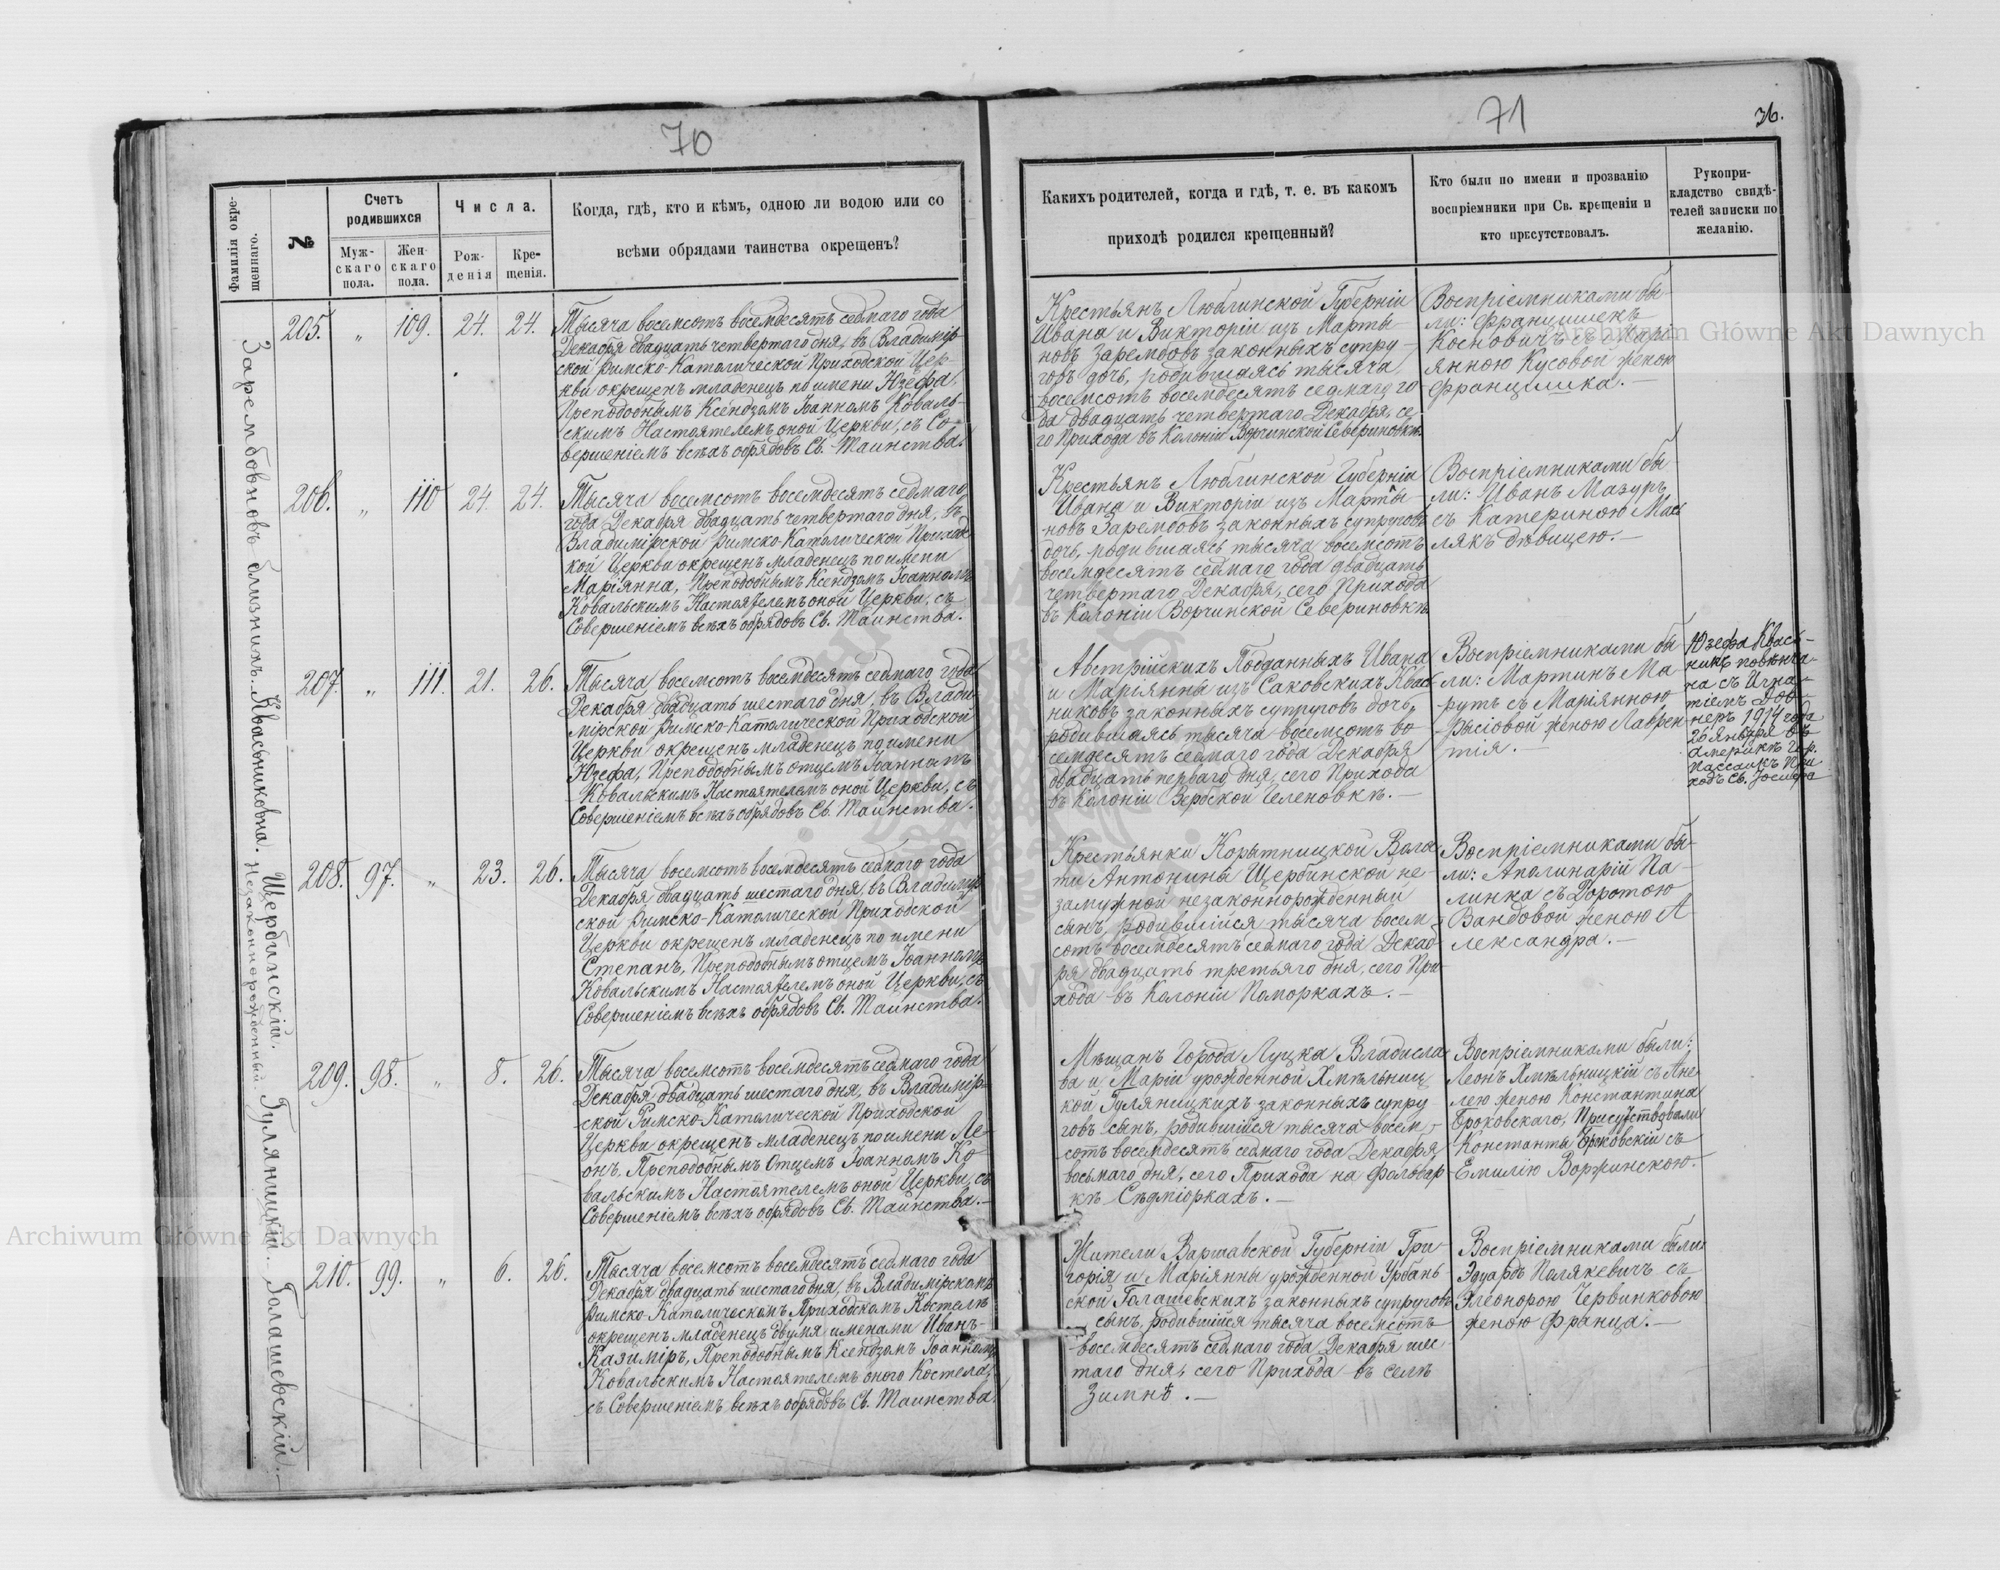 70
Фамилія окре-
щеннаго.
№
Счетъ
родившихся
Муж-
скаго
пола.
Жен-
скаго
пола.
Числа.
Рож-
денія
Кре-
щенія.
Когда, гдѣ, кто и кѣмъ, одною ли водою или со
всѣми обрядами таинства окрещенъ?
Зарембовновъ близницъ.
205. „ 109. 24. 24.
Тысяча восемсотъ восемдесятъ седмаго года
Декабря двадцать четвертаго дня, въ Владимір-
ской Римско-Католической Приходской Цер-
кви окрещенъ младенецъ по имени Юзефа,
Преподобнымъ Ксендзомъ Іоанномъ Коваль-
скимъ Настоятелемъ оной Церкви, съ Со-
вершеніемъ всѣхъ обрядовъ Св. Таинства.
206. „ 110 24. 24.
Тысяча восемсотъ восемдесятъ седмаго
года Декабря двадцать четвертаго дня, въ
Владимірской Римско-Католической Приходс
кой Церкви окрещенъ младенецъ по имени
Маріянна, Преподобнымъ Ксендзомъ Іоанномъ
Ковальскимъ Настоятелемъ оной Церкви, съ
Совершеніемъ всѣхъ обрядовъ Св. Таинства.
Квасьниковна.
207. „ 111. 21. 26.
Тысяча восемсотъ восемдесятъ седмаго года
Декабря двадцать шестаго дня, въ Влади-
мірской Римско-Католической Приходской
Церкви окрещенъ младенецъ по имени
Юзефа, Преподобнымъ отцемъ Іоанномъ
Ковальскимъ Настоятелемъ оной Церкви, съ
Совершеніемъ всѣхъ обрядовъ Св. Таинства.
Щербинскій.
незаконнорожденный.
208. 97. „ 23. 26.
Тысяча восемсотъ восемдесятъ седмаго года
Декабря двадцать шестаго дня, въ Владимір
ской Римско-Католической Приходской
Церкви окрещенъ младенецъ по имени
Степанъ, Преподобнымъ отцемъ Іоанномъ
Ковальскимъ Настоятелемъ оной Церкви, съ
Совершеніемъ всѣхъ обрядовъ Св. Таинства.
Гуляницкій.
209. 98. „ 8. 26.
Тысяча восемсотъ восемдесятъ седмаго года
Декабря двадцать шестаго дня, въ Владимір-
ской Римско-Католической Приходской
Церкви окрещенъ младенецъ по имени Ле-
онъ, Преподобнымъ Отцемъ Іоанномъ Ко-
вальскимъ Настоятелемъ оной Церкви, съ
Совершеніемъ всѣхъ обрядовъ Св. Таинства.—
Голашевскій.—
210. 99. „ 6. 26.
Тысяча восемсотъ восемдесятъ седмаго года
Декабря двадцать шестаго дня, въ Владимірскомъ
Римско-Католическомъ Приходскомъ Костелѣ
окрещенъ младенецъ двумя именами Иванъ-
Казиміръ, Преподобнымъ Ксендзомъ Іоанномъ
Ковальскимъ Настоятелемъ оного Костела,
съ Совершеніемъ всѣхъ обрядовъ Св. Таинства.
71
36.
Какихъ родителей, когда и гдѣ, т. е. въ какомъ
приходѣ родился крещенный?
Кто были по имени и прозванію
воспріемники при Св. крещеніи и
кто присутствовалъ.
Рукопри-
кладство свидѣ-
телей записки по
желанію.
Крестьянъ Люблинской Губерніи
Ивана и Викторіи изъ Марты-
новъ Зарембовъ законныхъ супру-
говъ дочь, родившаясь тысяча
восемсотъ восемдесятъ седмаго го
да двадцать четвертаго Декабря, се-
го Прихода въ Колоніи Ворчинской Севериновкѣ.
Воспріемниками бы-
ли: Францишекъ
Косновичъ съ Марі-
янною Кусовой женою
Францишка.—
Крестьянъ Люблинской Губерніи
Ивана и Викторіи изъ Марты-
новъ Зарембовъ законныхъ супруговъ
дочь, родившаясь тысяча восемсотъ
восемдесятъ седмаго года двадцать
четвертаго Декабря, сего Прихода
въ Колоніи Ворчинской Севериновкѣ
Воспріемниками бы-
ли: Иванъ Мазуръ
съ Катериною Мас
лякъ дѣвицею.—
Австрійскихъ Подданныхъ Ивана
и Маріянны изъ Саковскихъ Квась
никовъ законныхъ супруговъ дочь,
родившаясь тысяча восемсотъ во-
семдесятъ седмаго года Декабря
двадцать перваго дня, сего Прихода
въ Колоніи Вербской Геленовкѣ.—
Воспріемниками бы
ли: Мартинъ Ма-
рутъ съ Маріянною
Рысіовой женою Лаврен-
тія.—
Юзефа Квась-
никъ повѣнча-
на съ Игна-
тіемъ
неръ 1914 года
26 Января въ
Америкѣ гор.
Пассаикъ При
ходъ Св. Іосифа
Крестьянки Корытницкой Волос
ти Антонины Щербинской не-
замужной незаконнорожденный
сынъ, родившійся тысяча восем-
сотъ восемдесятъ седмаго года Декаб-
ря двадцать третьяго дня, сего При-
хода въ Колоніи Поморкахъ.—
Воспріемниками бы-
ли: Аполинарій Па-
линка съ Доротою
Вандовой женою А-
лександра.—
Мѣщанъ Города Луцка Владисла
ва и Маріи урожденной Хмѣльниц
кой Гуляницкихъ законныхъ супру
говъ сынъ, родившійся тысяча восем-
сотъ восемдесятъ седмаго года Декабря
восьмаго дня, сего Прихода на фольвар-
кѣ Сѣдміоркахъ.—
Воспріемниками были:
Леонъ Хмѣльницкій съ Ане-
лею женою Константина
Броковскаго, Присутствовали
Константы Броковскій съ
Емилію Воржинскою.
Жители Варшавской Губерніи Гри-
горія и Маріянны урожденной Урбань
ской Голашевскихъ законныхъ супруговъ
сынъ, родившійся тысяча восемсотъ
восемдесятъ седмаго года Декабря шес
таго дня, сего Прихода въ селѣ
Зимнѣ.—
Воспріемниками были
Эдуардъ Полякевичъ съ
Элеонорою Червинковою
женою Франца.—
Archiwum Główne Akt Dawnych
Archiwum Główne Akt Dawnych